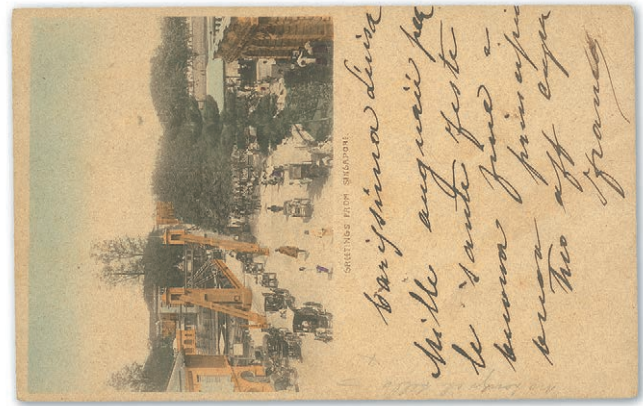 GREETINGS FROM SINGAPORE.
Carissima Luisa
Mille auguri per
le sante feste
buona fine e
buon principio
Tuo aff
Franco